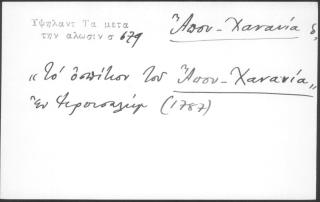 Ὑψηλαντ Τα μετα
την αλωσιν σ 679
Ἄπου-Χανανία
„Τό ὁσπίτιον τοῦ Ἄπου-Χανανία„
ἐν Ἱερουσαλήμ (1787)